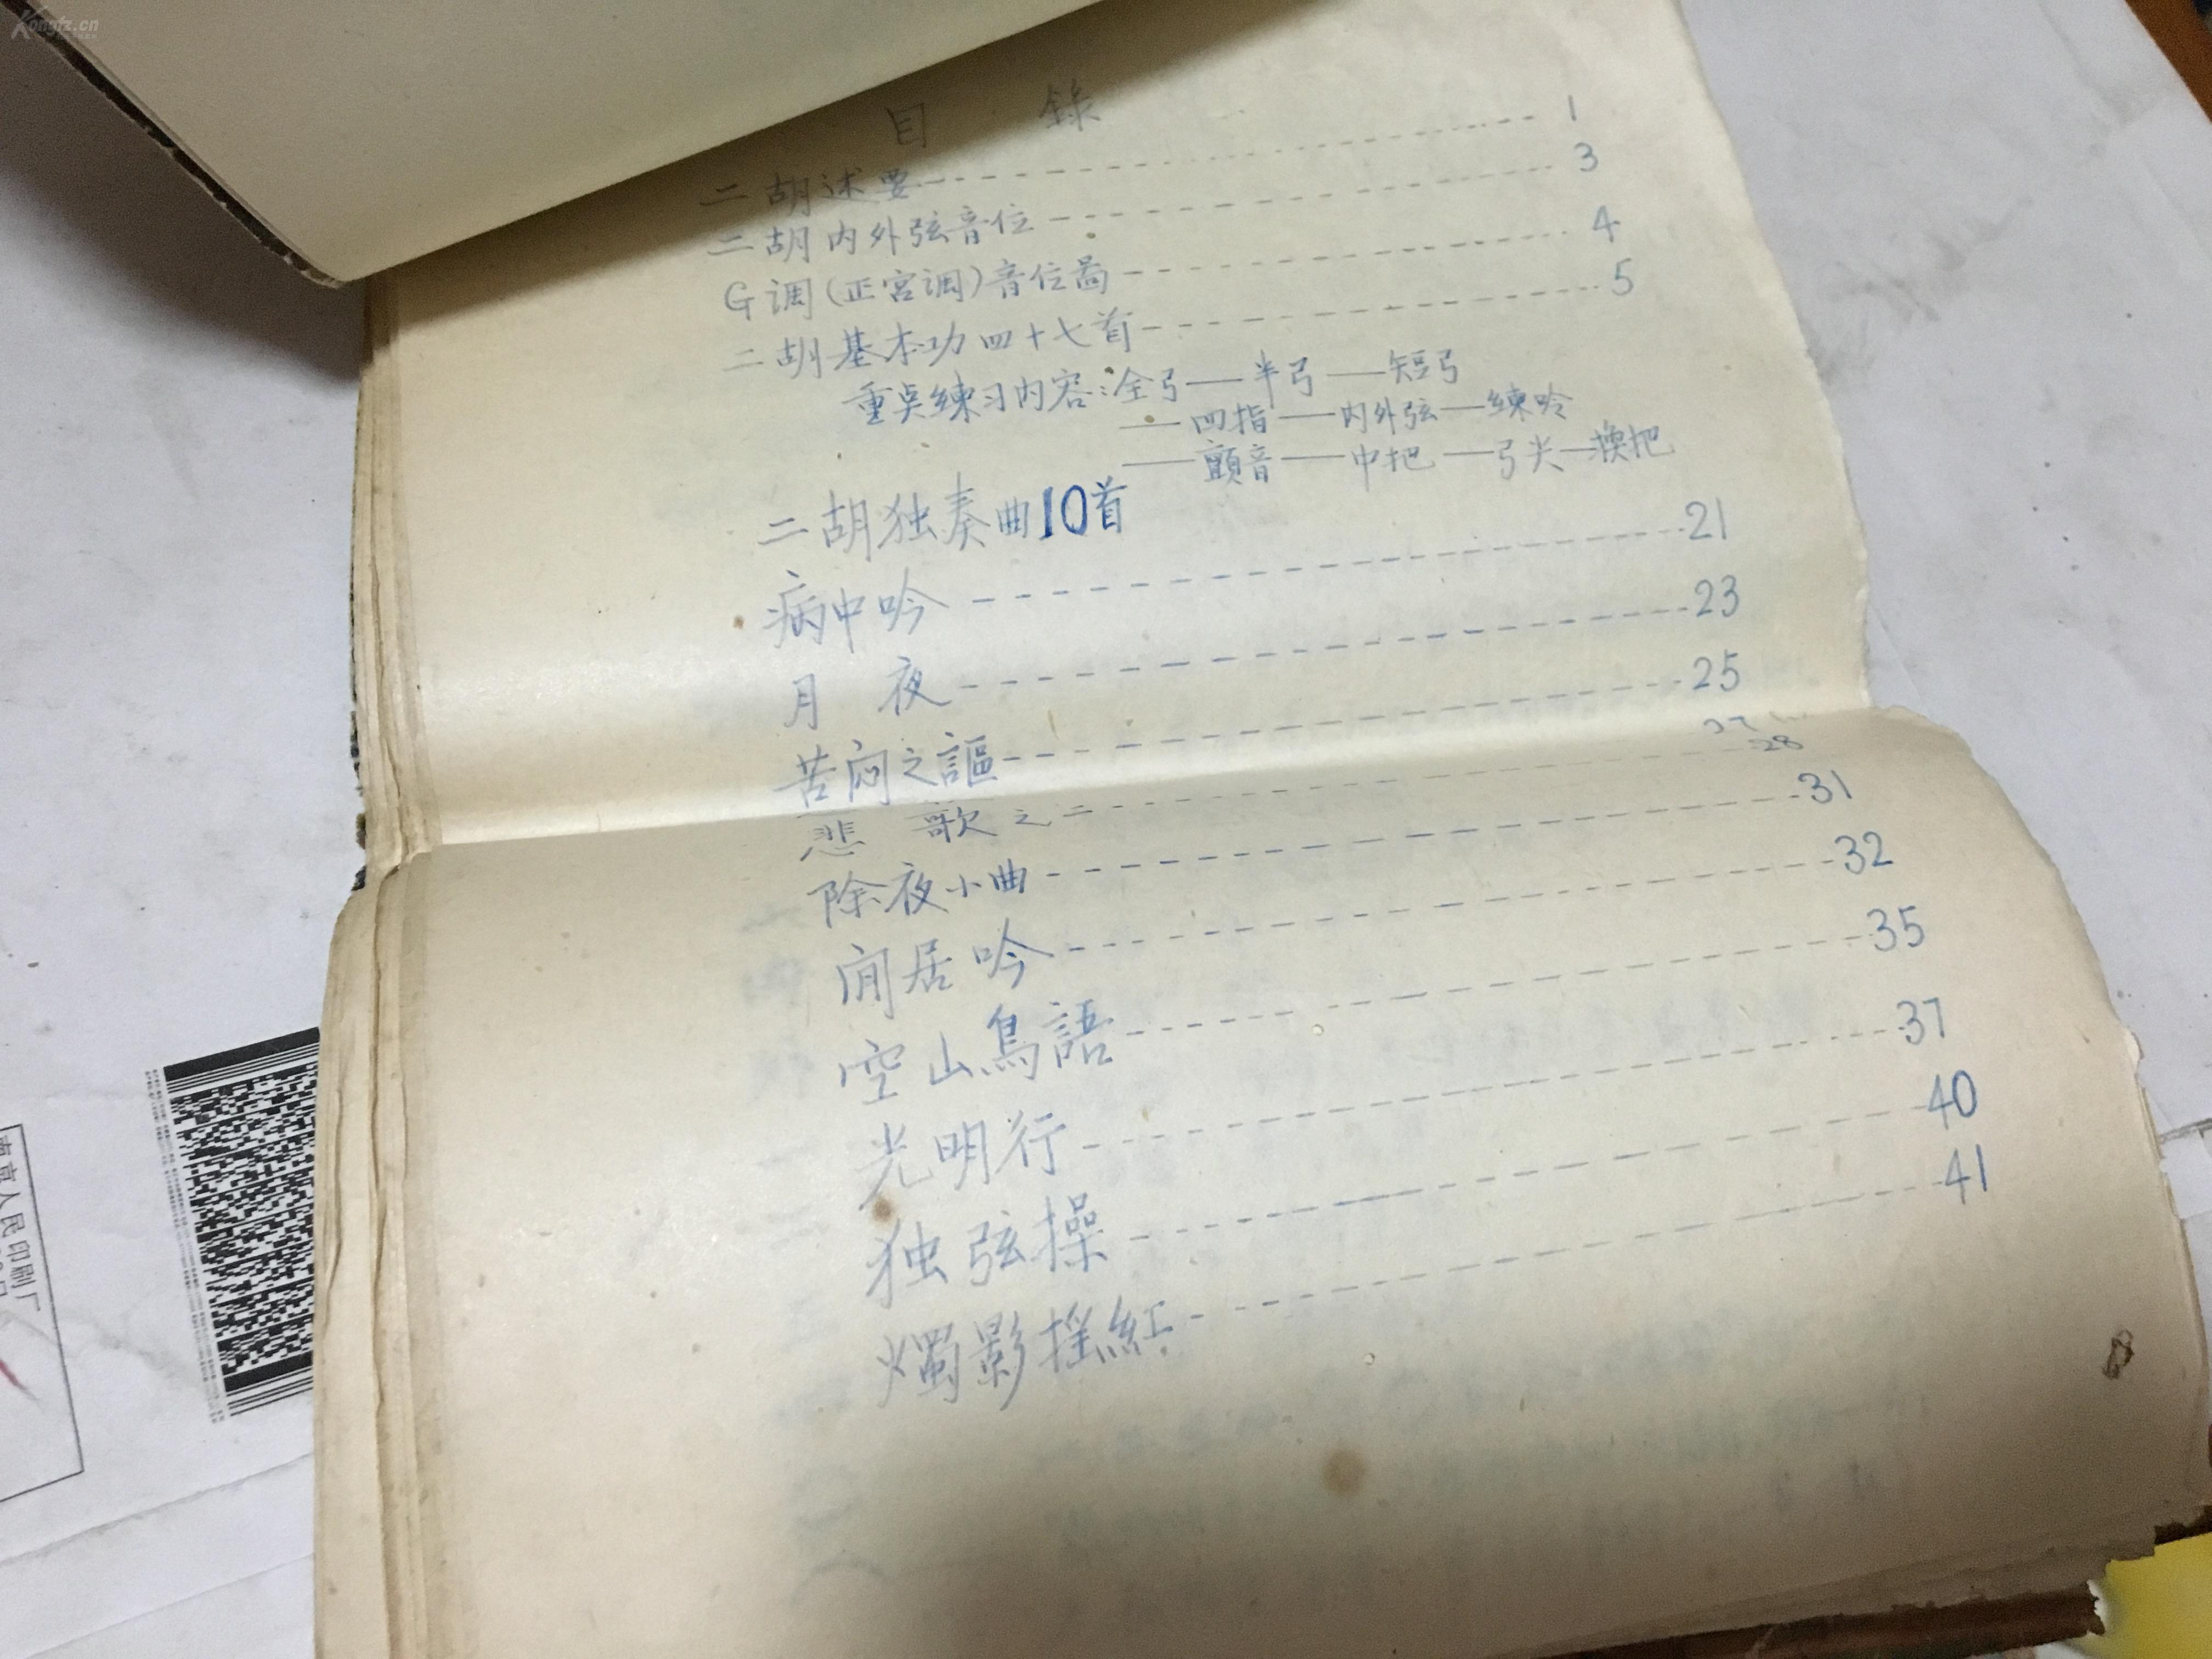 Kongfz.cn
目 錄
二胡述要 1
二胡内外弦音位 3
G调(正宮调)音位啚 4
二胡基本功四十七首 5
重点練习内容:全弓——半弓——短弓
——四指——内外弦——練吟
——顫音——中把——弓尖—換把
二胡独奏曲10首
病中吟 21
月夜 23
苦闷之謳 25
悲歌之二 28
除夜小曲 31
闲居吟 32
空山鳥語 35
光明行 37
独弦操 40
燭影摇紅 41
南京人民印刷厂